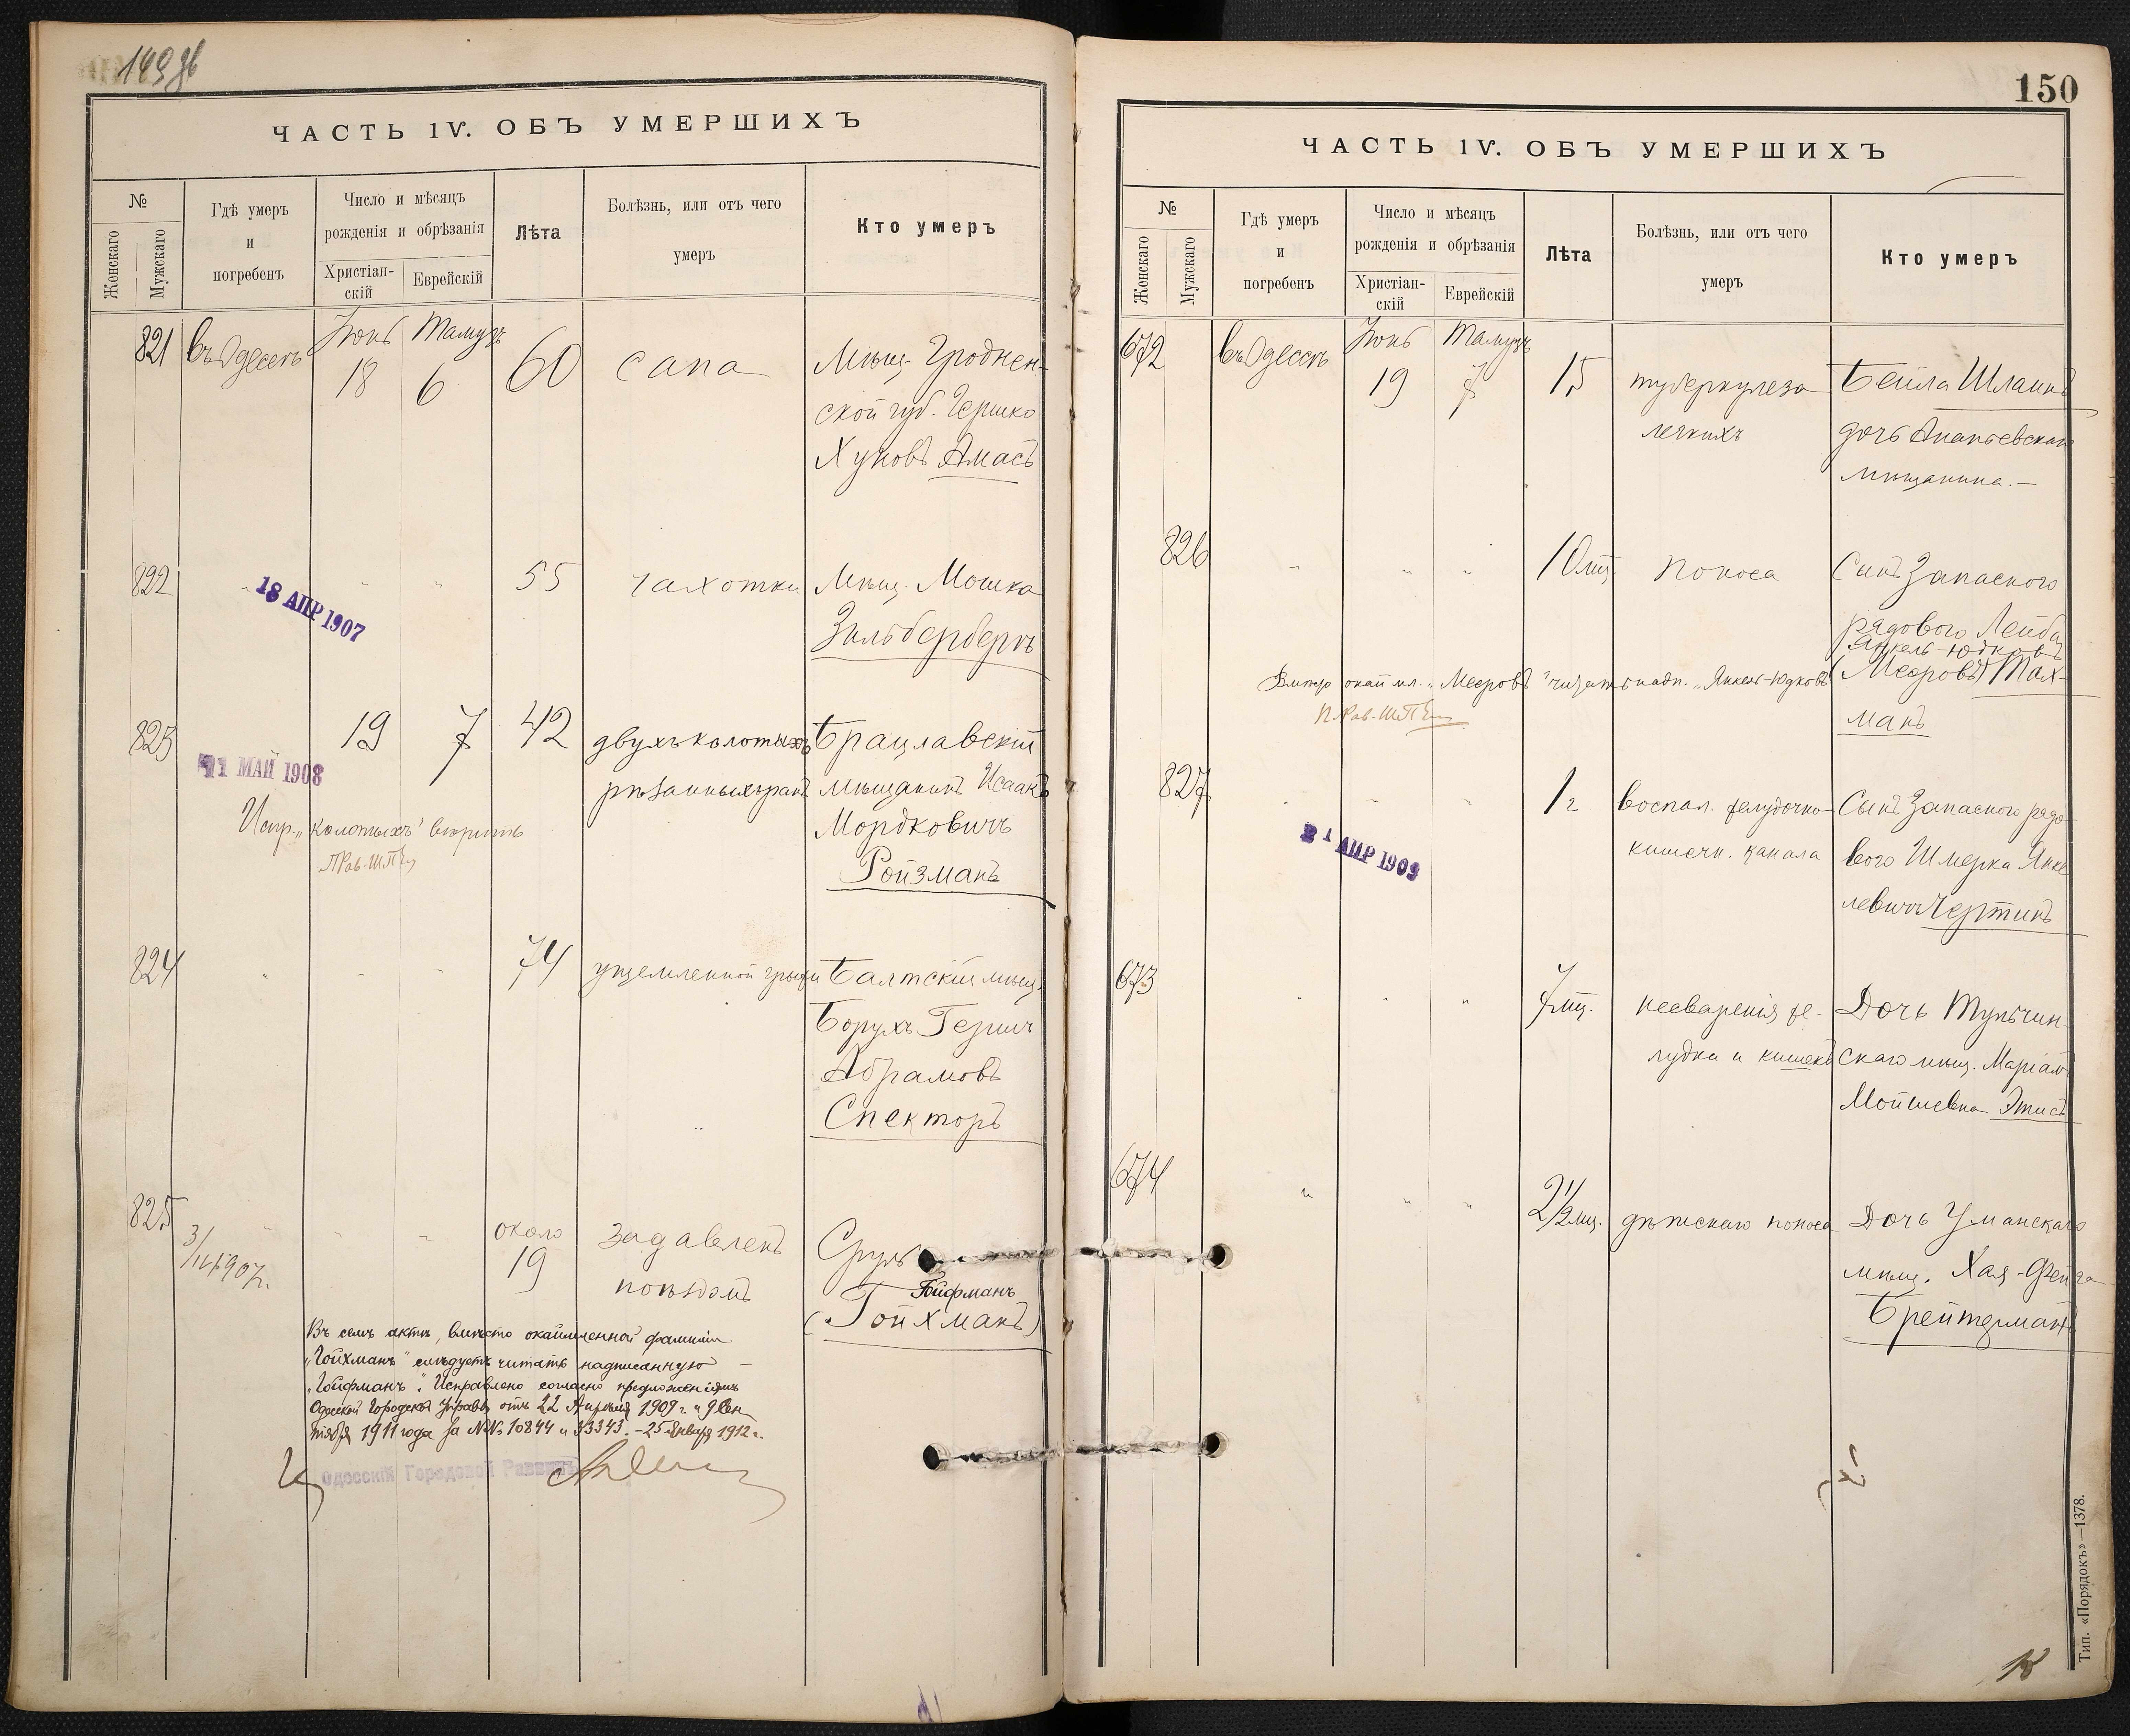 149 об
ЧАСТЬ IV. ОБЪ УМЕРШИХЪ
№
Женскаго
Мужскаго
Гдѣ умеръ
и
погребенъ
Число и мѣсяцъ
рожденія и обрѣзанія
Христіан-
скій
Еврейскій
Лѣта
Болѣзнь, или отъ чего
умеръ
Кто умеръ
821 въ Одессѣ Іюнь 18 Тамузъ 6 60 сапа Мѣщ. Гроднен-
ской губ. Гершко
Хуновъ Амасъ
822 " " " 55 чахотки Мѣщ. Мошка
18 АПР 1907
Зильбербергъ
823 19 7 42 двухъ колотыхъ Брацлавскій
11 МАЙ 1908
рѣзанныхъ ранъ мѣщанинъ Исаакъ
Испр. „колотыхъ" вѣрить
Мордковичъ
Ройзманъ
824 " " " 74 ущемленной грыжи Балтскій мѣщ.
Борухъ Герши
Абрамовъ
Спекторъ
825 " " " около 19 задавленъ Сруль
3/II 1907 г.
поѣздомъ
Гойфманъ
(Гойхманъ)
Въ семъ актѣ, вмѣсто окаймленной фамиліи
„Гойхманъ" слѣдуетъ читать надписанную —
„Гойфманъ". Исправлено согласно предложеніямъ
Одесской Городской Управы отъ 22 Апрѣля 1909 г. и 9 Сен
тября 1911 года за №№ 10844 и 33343. - 25 Января 1912 г.
Одесскій Городской Раввинъ
150
ЧАСТЬ IV. ОБЪ УМЕРШИХЪ
№
Женскаго
Мужскаго
Гдѣ умеръ
и
погребенъ
Число и мѣсяцъ
рожденія и обрѣзанія
Христіан-
скій
Еврейскій
Лѣта
Болѣзнь, или отъ чего
умеръ
Кто умеръ
672 въ Одессѣ Іюнь 19 Тамузъ 7 15 туберкулеза Бейла Шлаинъ
легкихъ дочь Ананьевскаго
мѣщанина. —
826 " " " 10 мц. поноса Сынъ Запаснаго
рядового Лейба
Янкель-Юдковъ
(Мееровъ) Тах-
Вмѣсто окаймл. „Мееровъ" читать надп. „Янкель-Юдковъ"
манъ
827 " " " 1 г воспал. желудочно Сынъ Запаснаго рядо-
21 АПР 1909
кишечн. канала вого Шмерка Янке
левичъ Чертинъ
673 " " " 7 мц. несваренія же- Дочь Тульчин-
лудка и кишекъ скаго мѣщ. Маріам
Мойшевна Этисъ
674 " " " 2 1/2 мц. дѣтскаго поноса Дочь Уманскаго
мѣщ. Хая-Фейга
Брейтерманъ
Тип. «Порядокъ»—1378.